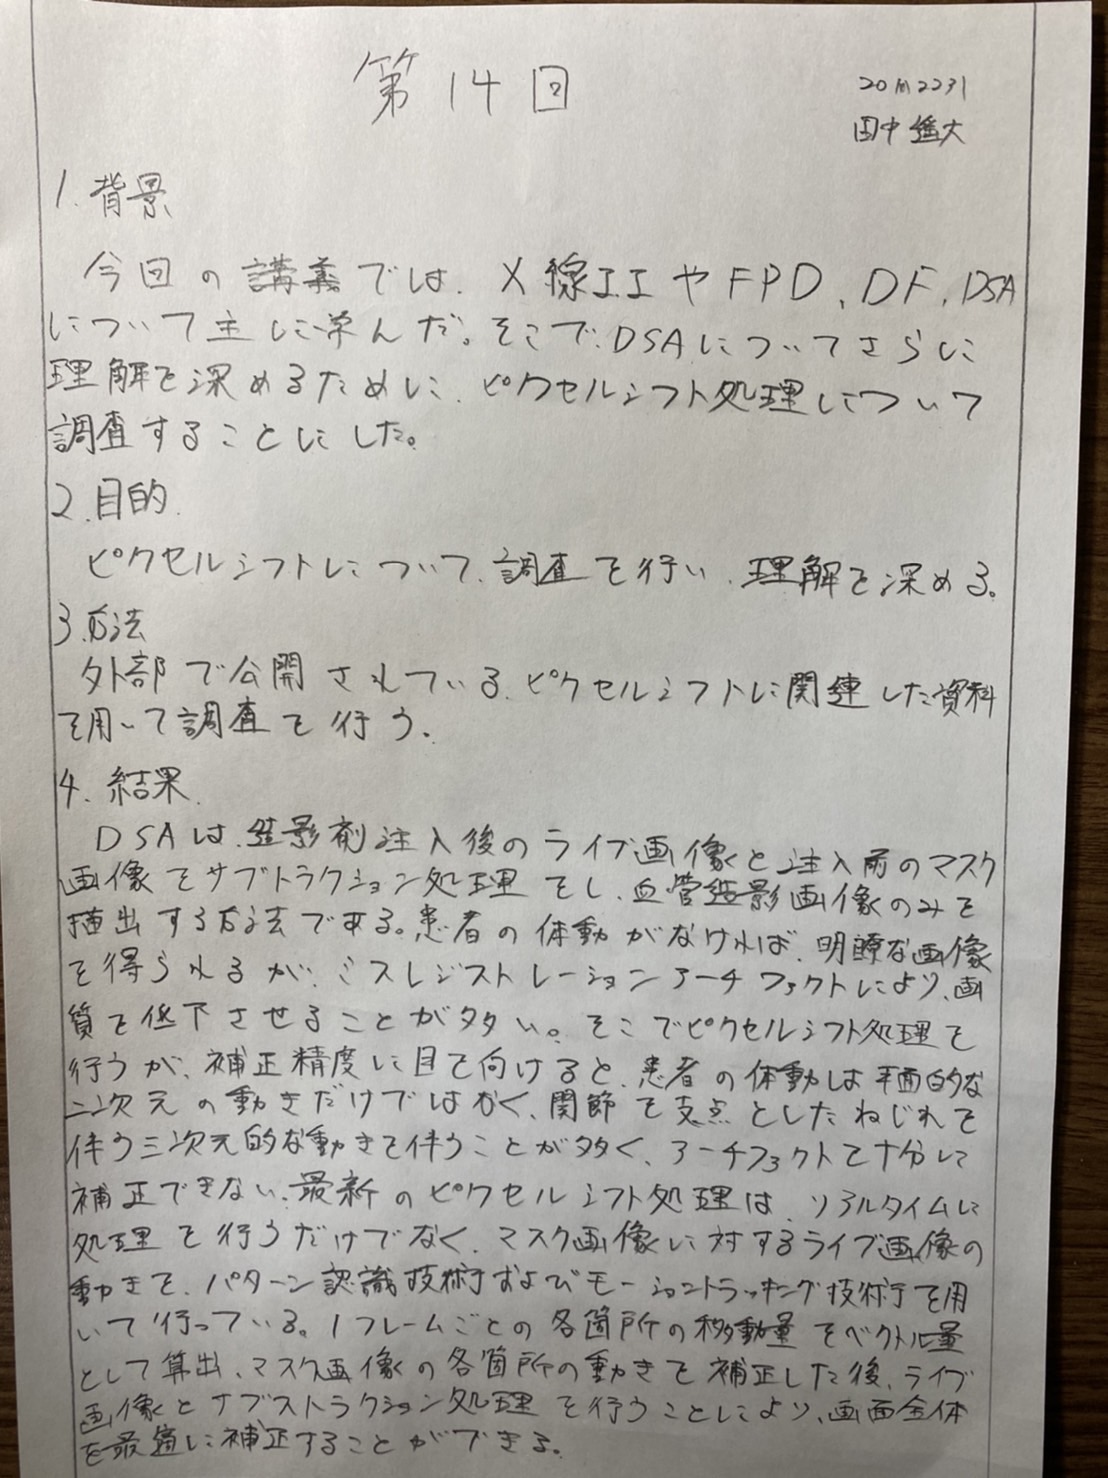 第14回
20M2231
田中 大
1.背景
今回の講義では、X線IIやFPD、DF、DSA
について主に学んだ。そこで、DSAについてさらに
理解を深めるために、ピクセルシフト処理について
調査することにした。
2.目的
ピクセルシフトについて、調査を行い、理解を深める。
3.方法
外部で公開されている、ピクセルシフトに関連した資料
を用いて調査を行う。
4.結果
DSAは、造影剤注入後のライブ画像と注入前のマスク
画像をサブトラクション処理をし、血管造影画像のみを
抽出する方法である。患者の体動がなければ、明瞭な画像
を得られるが、ミスレジストレーションアーチファクトにより、画
質を低下させることが多い。そこでピクセルシフト処理を
行うが、補正精度に目を向けると、患者の体動は平面的な
二次元の動きだけではなく、関節を支点としたねじれを
伴う三次元的な動きを伴うことが多く、アーチファクトを十分に
補正できない。最新のピクセルシフト処理は、リアルタイムに
処理を行うだけでなく、マスク画像に対するライブ画像の
動きを、パターン認識技術およびモーショントラッキング技術を用
いて行っている。1フレームごとの各箇所の移動量をベクトル量
として算出、マスク画像の各箇所の動きを補正した後、ライブ
画像とサブストラクション処理を行うことにより、画面全体
を最適に補正することができる。